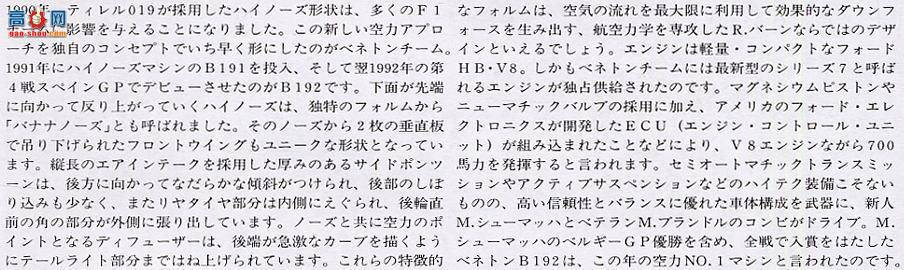 ティレル019が採用したハイノーズ形状は、多くのF1
影響を与えることになりました。この新しい空力アプロ
ーチを独自のコンセプトでいち早く形にしたのがベネトンチーム。
1991年にハイノーズマシンのB191を投入、そして翌1992年の第
4戦スペインGPでデビューさせたのがB192です。下面が先端
に向かって反り上がっていくハイノーズは、独特のフォルムから
「バナナノーズ」とも呼ばれました。そのノーズから2枚の垂直板
で吊り下げられたフロントウイングもユニークな形状となってい
ます。縦長のエアインテークを採用した厚みのあるサイドポンツ
ーンは、後方に向かってなだらかな傾斜がつけられ、後部のしぼ
り込みも少なく、またリヤタイヤ部分は内側にえぐられ、後輪直
前の角の部分が外側に張り出しています。ノーズと共に空力のポ
イントとなるディフューザーは、後端が急激なカーブを描くよう
にテールライト部分まではね上げられています。これらの特徴的
なフォルムは、空気の流れを最大限に利用して効果的なダウンフ
ォースを生み出す、航空力学を専攻したR.バーンならではのデザ
インといえるでしょう。エンジンは軽量・コンパクトなフォード
HB・V8。しかもベネトンチームには最新型のシリーズ7と呼ば
れるエンジンが独占供給されたのです。マグネシウムピストンや
ニューマチックバルブの採用に加え、アメリカのフォード・エレ
クトロニクスが開発したECU(エンジン・コントロール・ユニ
ット)が組み込まれたことなどにより、V8エンジンながら700
馬力を発揮すると言われます。セミオートマチックトランスミッ
ションやアクティブサスペンションなどのハイテク装備こそない
ものの、高い信頼性とバランスに優れた車体構成を武器に、新人
M.シューマッハとベテランM.ブランドルのコンビがドライブ。M.
シューマッハのベルギーGP優勝を含め、全戦で入賞をはたした
ベネトンB192は、この年の空力NO.1マシンと言われたのです。